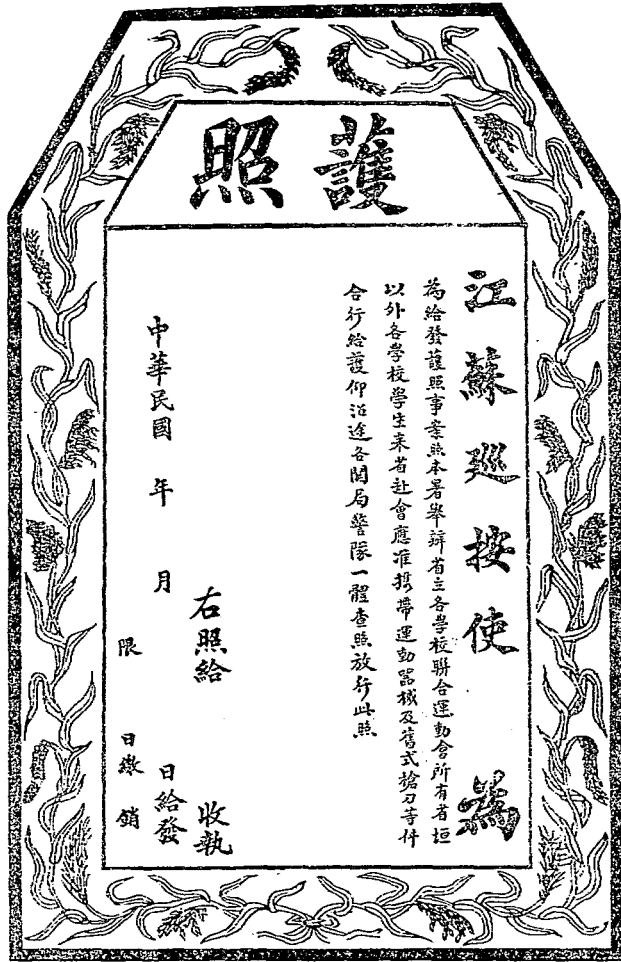 護照
江蘇巡按使 為
為給發護照事案照本署舉辦省立各學校聯合運動會所有省垣
以外各學校學生來省赴會應准携帶運動器械及舊式槍刀等件
合行給護仰沿途各関局警隊一體查照放行此照
右照給 收執
中華民國 年 月 日給發
限 日繳銷